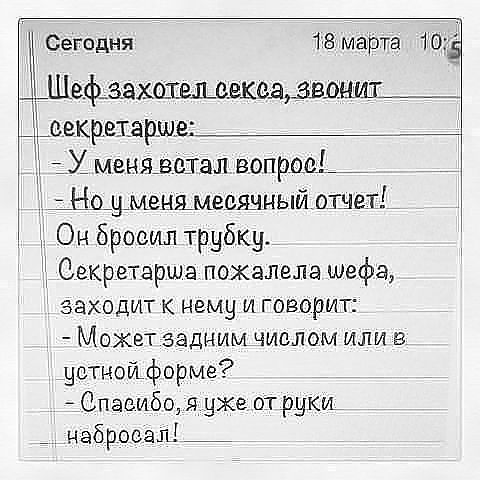 Сегодня 18 марта 10:45
Шеф захотел секса, звонит
секретарше:
- У меня встал вопрос!
- Но у меня месячный отчет!
Он бросил трубку.
Секретарша пожалела шефа,
заходит к нему и говорит:
- Может задним числом или в
устной форме?
- Спасибо, я уже от руки
набросал!